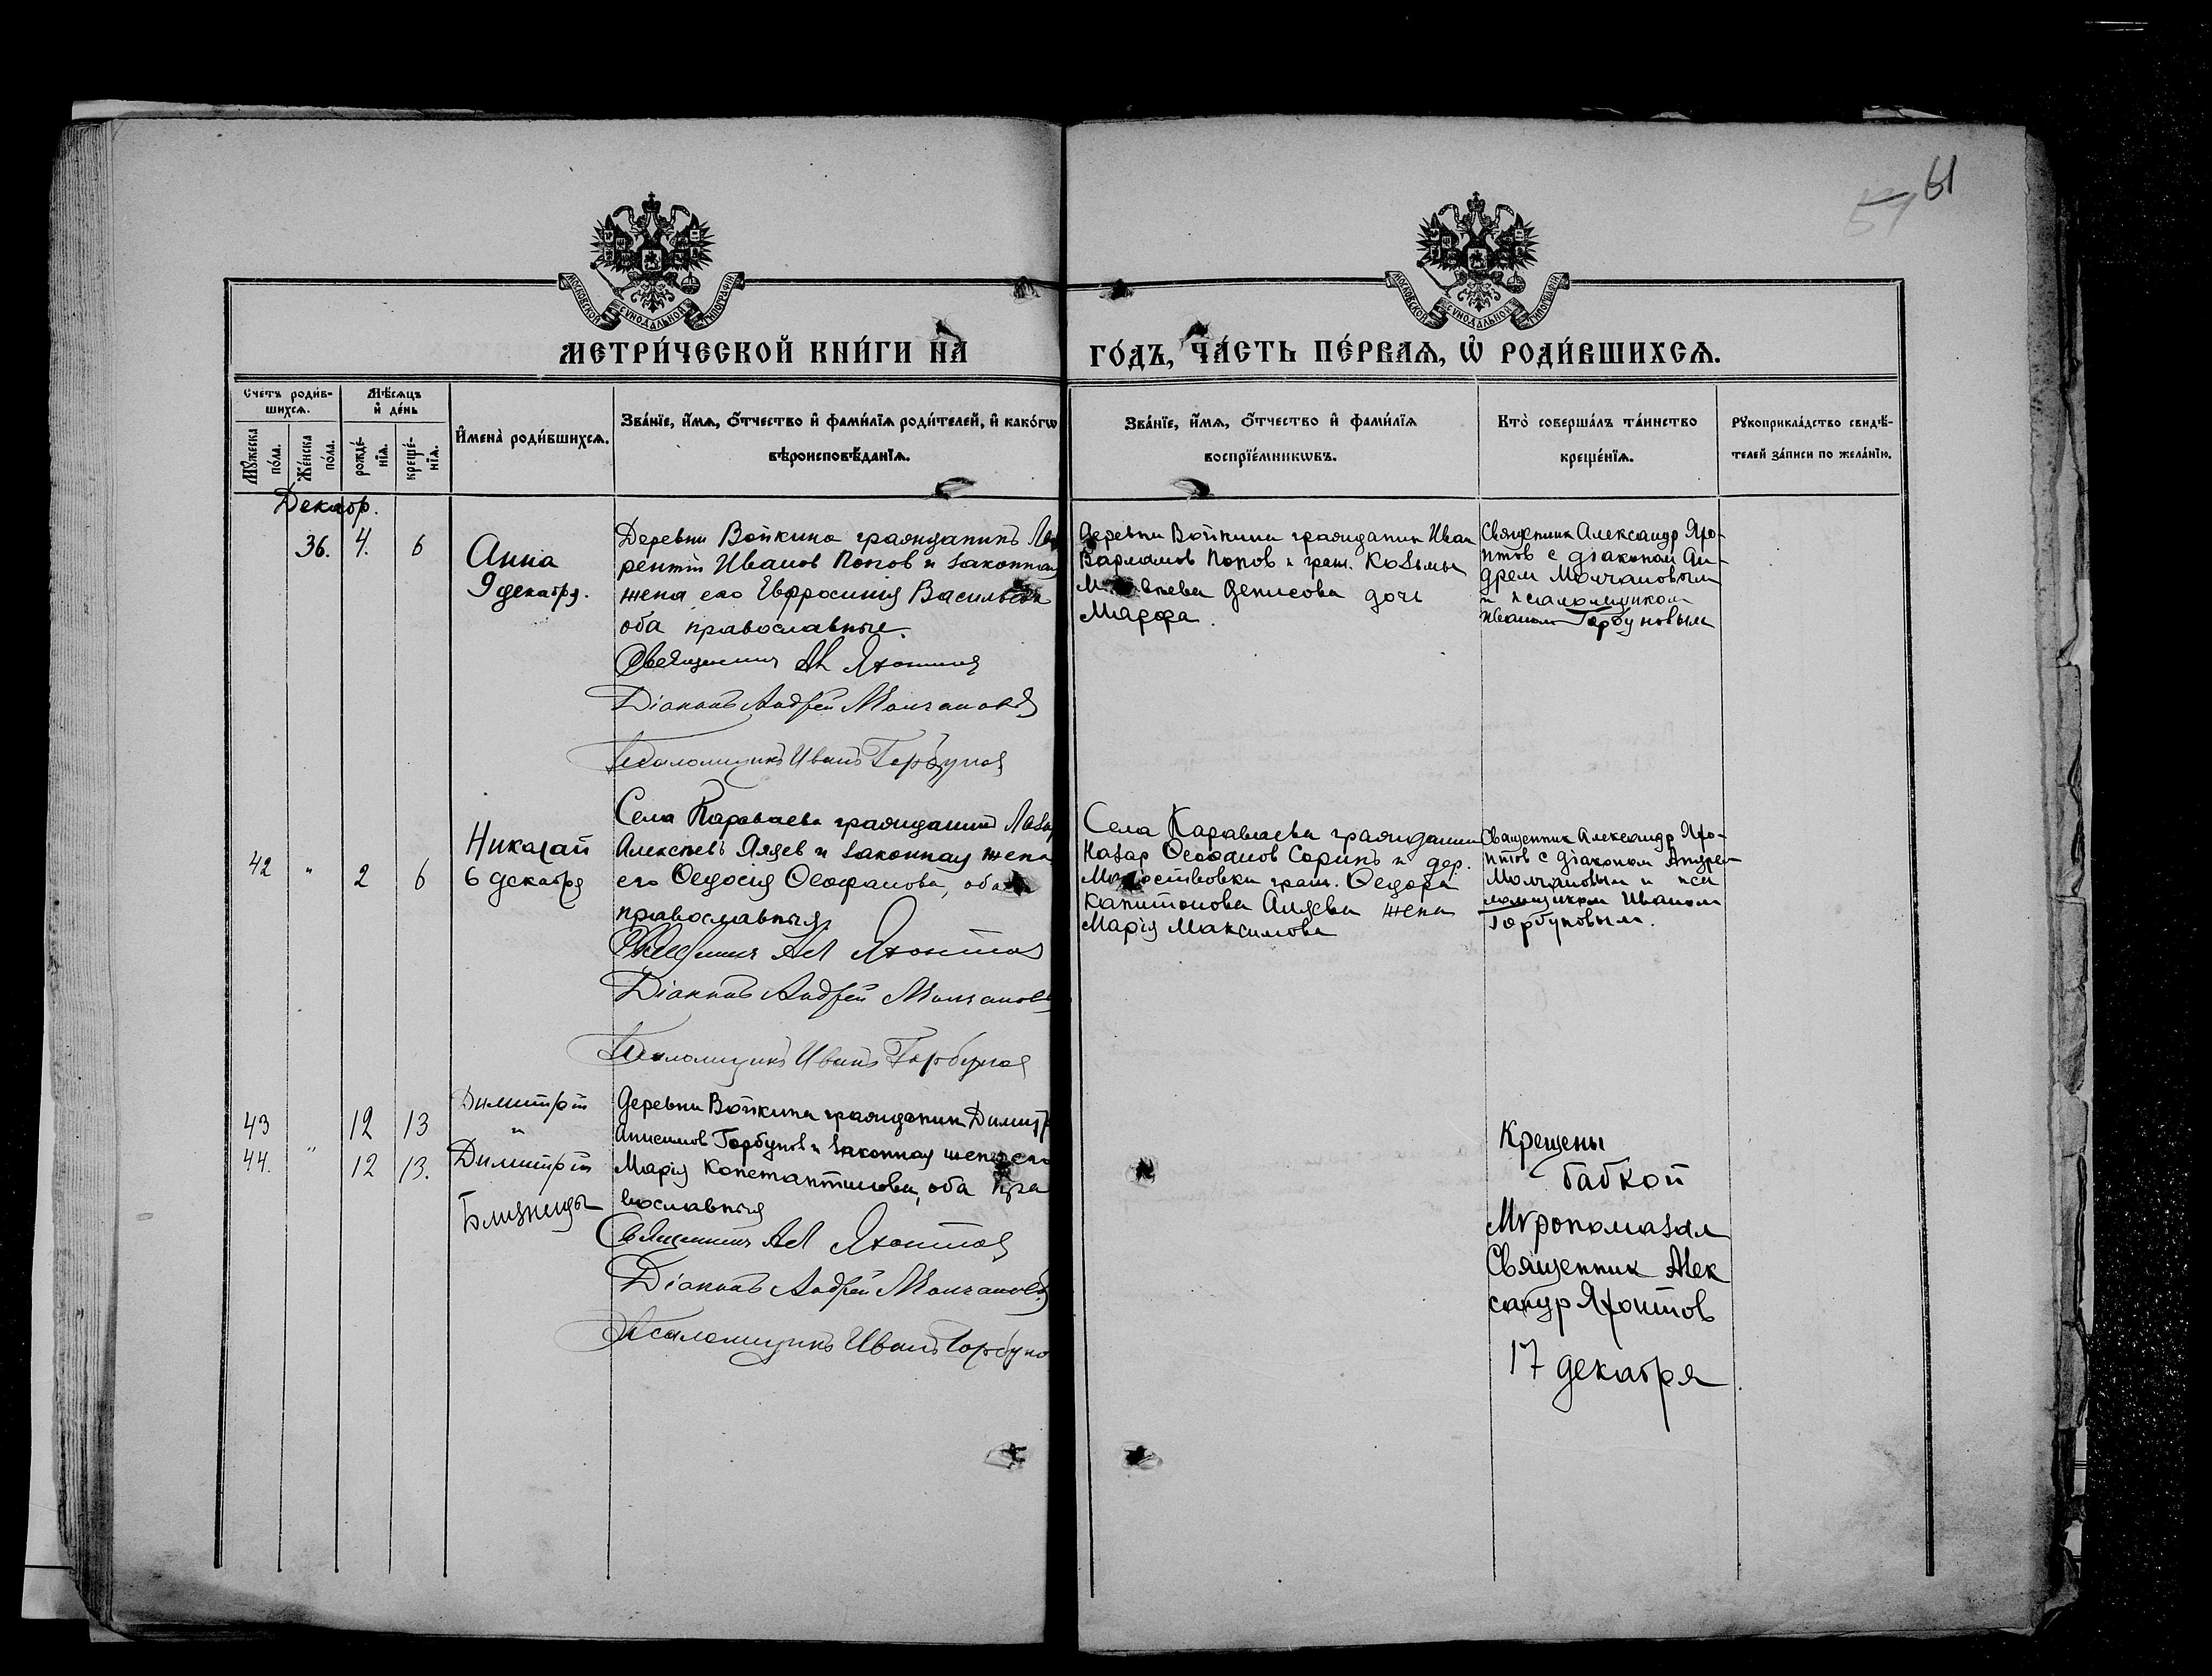 61
57
МОСКОВСКОЙ СУНОДАЛЬНОЙ ТИПОГРАФІИ
МОСКОВСКОЙ СУНОДАЛЬНОЙ ТИПОГРАФІИ
МЕТРИ́ЧЕСКОЙ КНИ́ГИ НА
ГО́ДЪ, ЧА́СТЬ ПЕ́РВАѦ, Ѡ РОДИ́ВШИХСѦ.
Счетъ роди́в-
шихсѧ.
Мѣ́сѧцъ
и де́нь
Мꙋ́жеска
по́ла.
Же́нска
по́ла.
рожде́-
нїѧ.
креще́-
нїѧ.
Имена̀ роди́вшихсѧ.
Зва́нїе, и́мѧ, о́тчество и фами́лїѧ роди́телей, и како́гѡ
вѣроисповѣ́данїѧ.
Зва́нїе, и́мѧ, о́тчество и фами́лїѧ
воспрїе́мникѡвъ.
Кто̀ соверша́лъ та́инство
креще́нїѧ.
Рꙋкоприкла́дство свидѣ́-
телей за́писи по жела́нїю.
Декабр.
36. 4. 6
Анна
9 декабря.
Деревни Войкина гражданинъ
рентій Иванов Попов и законная
жена его Евфросинія Васильева
оба православные.
Священник Ал Яхонтов
Діаконъ Андрей Молчановъ
Псаломщикъ Иванъ Горбунов
Деревни Войкина гражданин Иван
Варламов Попов и граж. Козьмы
Денисова дочь
Марфа.
Священник Александр Яхо-
нтов с діаконом Ан-
дреем Молчановым
и псаломщиком
Иваном Горбуновым
42 " 2 6
Николай
6 декабря
Села Караваева гражданин Лазар
Алексеевъ Лядев и законная жена
его Ѳедосия Ѳеофанова, оба
православныя
Священник Ал Яхонтов
Діаконъ Андрей Молчановъ
Псаломщикъ Иванъ Горбунов
Села Караваева гражданин
Назар Ѳеофанов Сорин и дер.
граж. Ѳедора
Капитонова Аляева жена
Марія Максимова
Священник Александр Яхо-
нтов с діаконом Андрее
Молчановым и пса
ломщиком Иваном
Горбуновым.
43 " 12 13
44. 12 13.
Димитрій
и
Димитрій
Близнецы
Деревни Войкина гражданин Димит
Анисимов Горбунов и законная жена его
Марія Константинова, оба пра
вославныя
Священник Ал Яхонтов
Діаконъ Андрей Молчановъ
Псаломщикъ Иванъ Горбуно
Крещены
бабкой
Мѵропомазал
Священник Алек
сандр Яхонтов
17 декабря